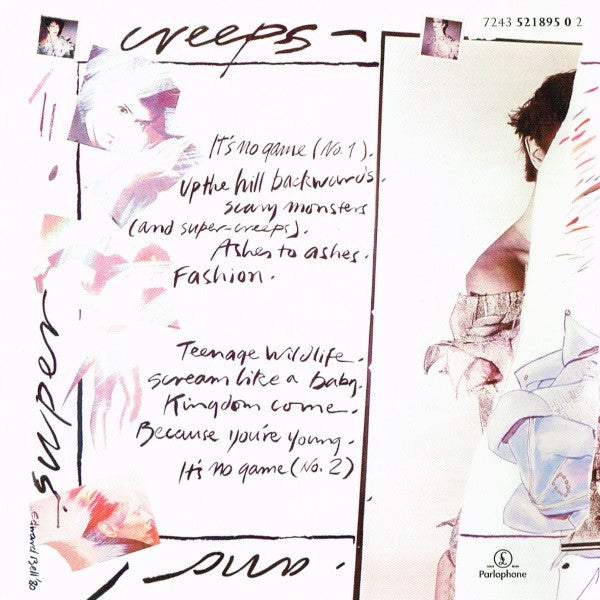 creeps -
7243 521895 0 2
It's no game (No. 1).
up the hill backwards.
scary monsters
(and super-creeps).
Ashes to ashes.
Fashion.
Teenage wildlife.
scream like a baby.
Kingdom come.
Because you're young.
It's no game (No. 2)
super
and.
Edward Bell '80
Parlophone